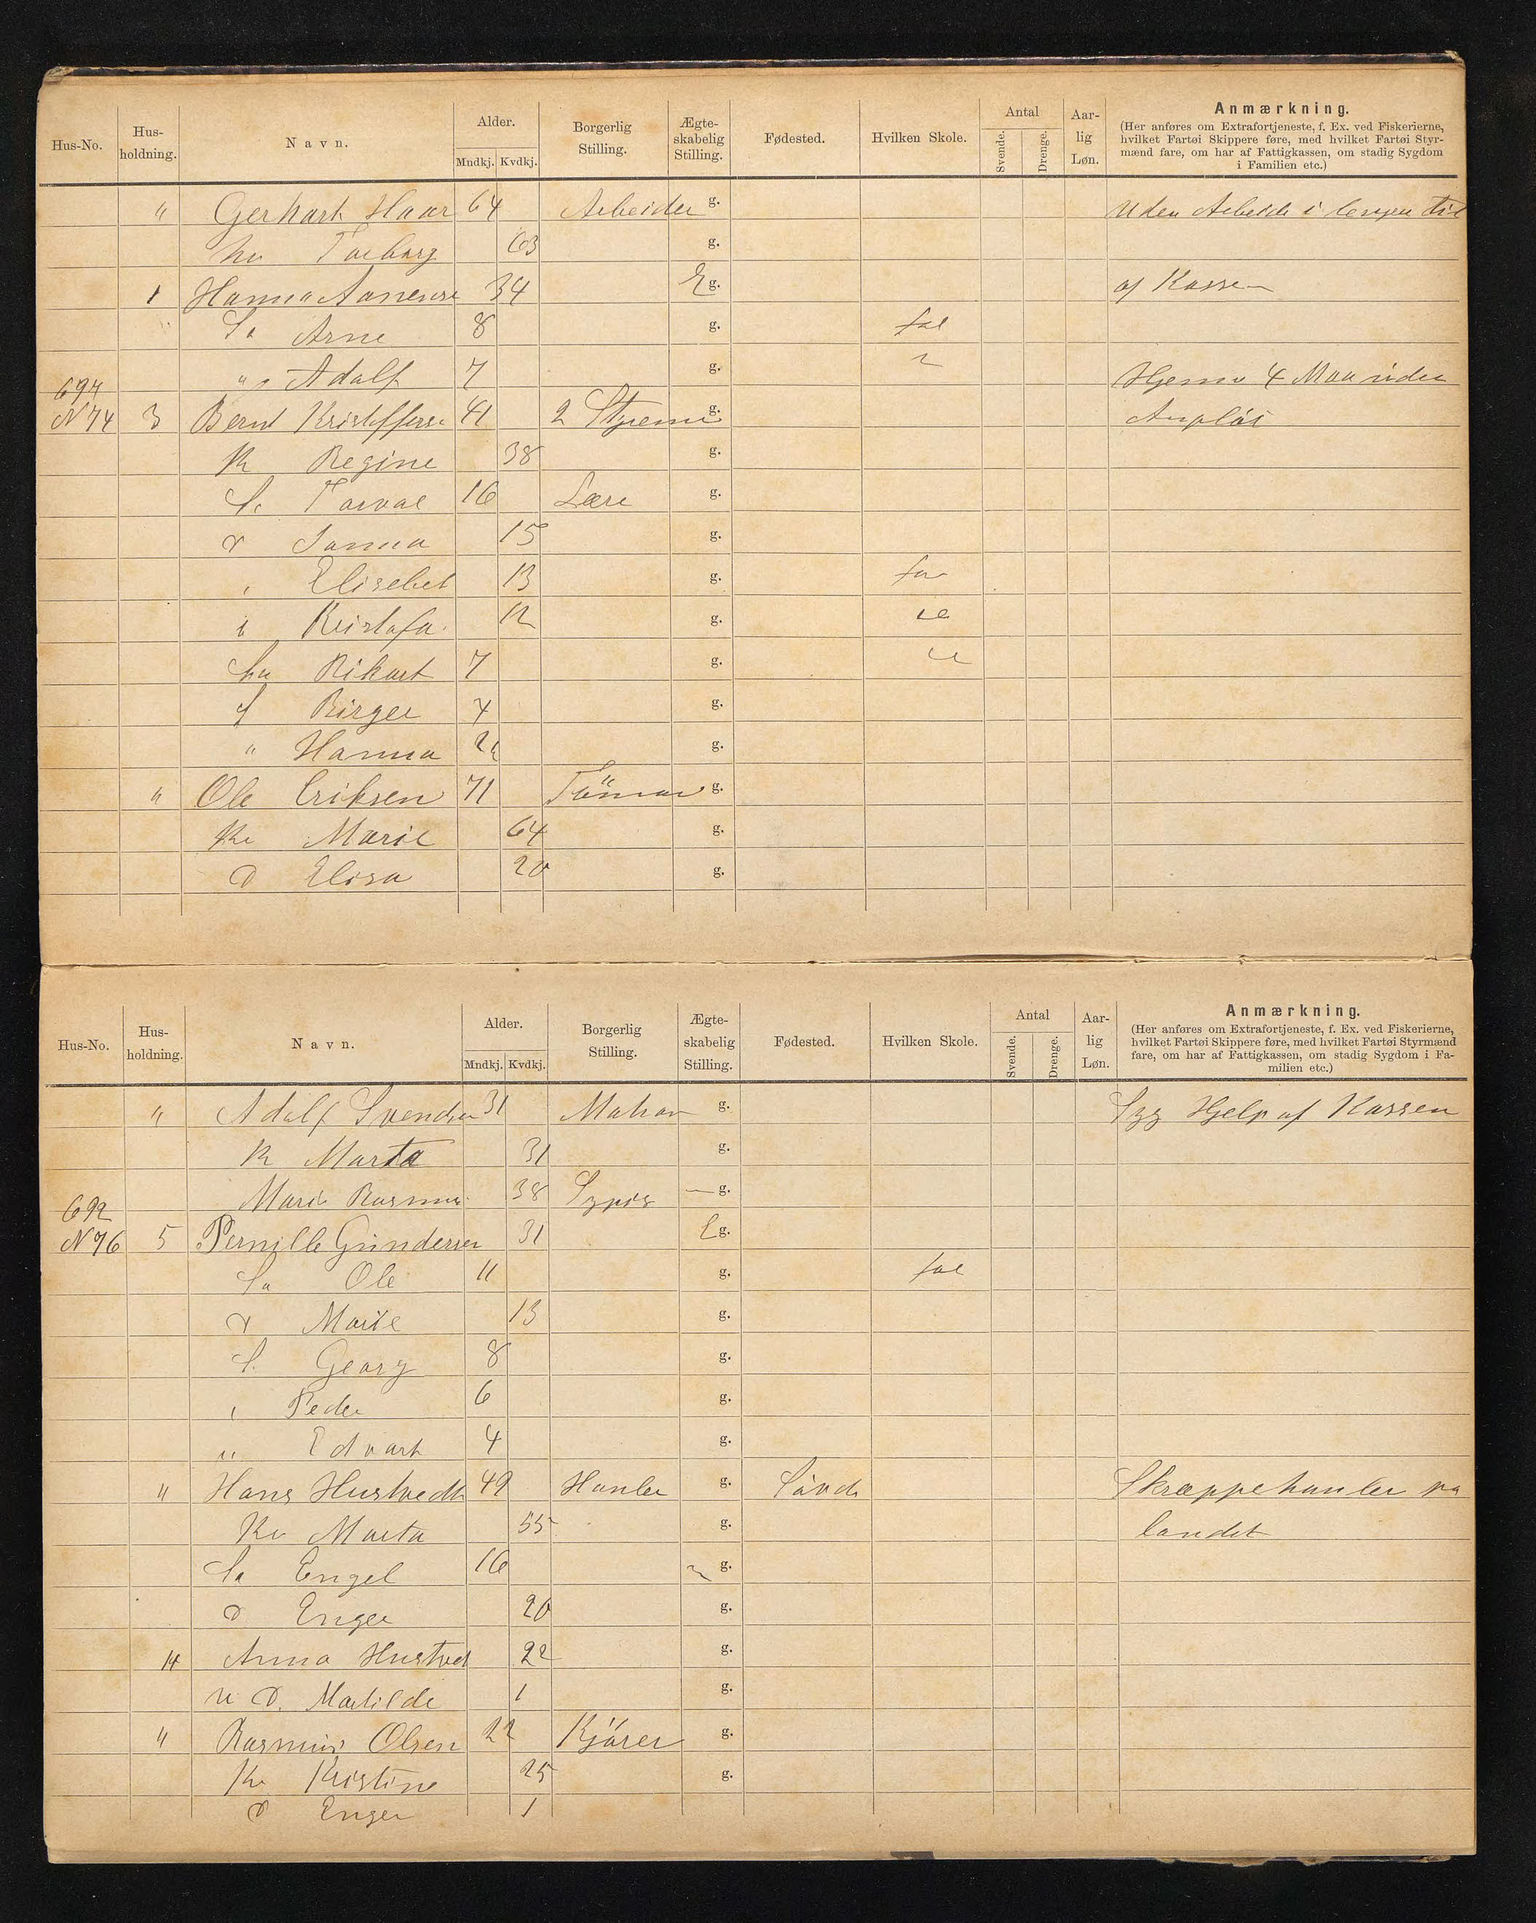 Hus-No. Hus-holdning. Navn. Alder. Mndkj. Kvdkj. Borgerlig Stilling. Ægte-skabelig Stilling. Fødested. Hvilken Skole. Antal Svende. Drenge. Aar-lig Løn. Anmærkning.
(Her anføres om Extrafortjeneste, f. Ex. ved Fiskerierne,
hvilket Fartøi Skippere føre, med hvilket Fartøi Styr-
mænd fare, om har af Fattigkassen, om stadig Sygdom
i Familien etc.)
" Gerhart Haar 64 Arbeider g. Uden Arbeide i lengere tid
Ko Torborg 63 g.
1 Hanna 34 E g. af Kassen
Sø Arne 8 g. fol
" Adolf 7 g. Hjeme 4 Maaneder
694
N 74 3 Bernt Kristoffersen 41 2 Styrem g.
K Regine 38 g.
S. Torval 16 Lære g.
D Janna 15 g.
Elisebet 13 g.
Kristofa 12 g.
Sø Rikart 7 g.
S Birger 4 g.
" Hanna g.
" Ole Eriksen 71 Tømer g.
Ko Marie 64 g.
D Elisa 20 g.
Hus-No. Hus-holdning. Navn. Alder. Mndkj. Kvdkj. Borgerlig Stilling. Ægte-skabelig Stilling. Fødested. Hvilken Skole. Antal Svende. Drenge. Aar-lig Løn. Anmærkning.
(Her anføres om Extrafortjeneste, f. Ex. ved Fiskerierne,
hvilket Fartøi Skippere føre, med hvilket Fartøi Styrmænd
fare, om har af Fattigkassen, om stadig Sygdom i Fa-
milien etc.)
" Adolf Svendsen 31 g. Syg Hjelp af Kassen
K Marta 31 g.
Mari Rasmu 38 Sypig g.
692
N 76 5 Pernille Gundersen 31 E g.
Sø Ole 11 g. fol
D Marie 13 g.
S. Georg 8 g.
Peder 6 g.
" Edvart 4 g.
" Hans Hustvedt 49 Hanler g. Skrappehanler pa
Ko Marta 55 g. landet
Sø Engel 16 g.
D Enger 20 g.
Anna Hustvet 22 g.
u D. Matilde 1 g.
" Rasmus Olsen 22 Kjører g.
Ko Kristine 25 g.
D Enger 1